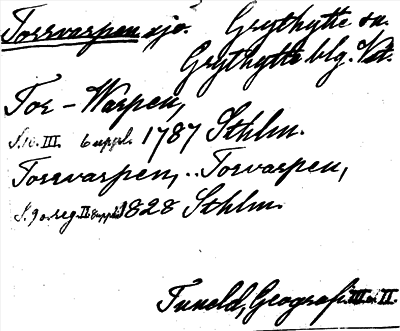 Torrvarpen sjö. Grythytte sn.
Grythytte blg. Vstm.
Tor-Warpen,
S. 10. III. 6 uppl. 1787 Sthlm.
Torrvarpen, Torvarpen,
S. 90. reg. II. 8 uppl. 1828 Sthlm.
Tuneld, Geografi III o. II.